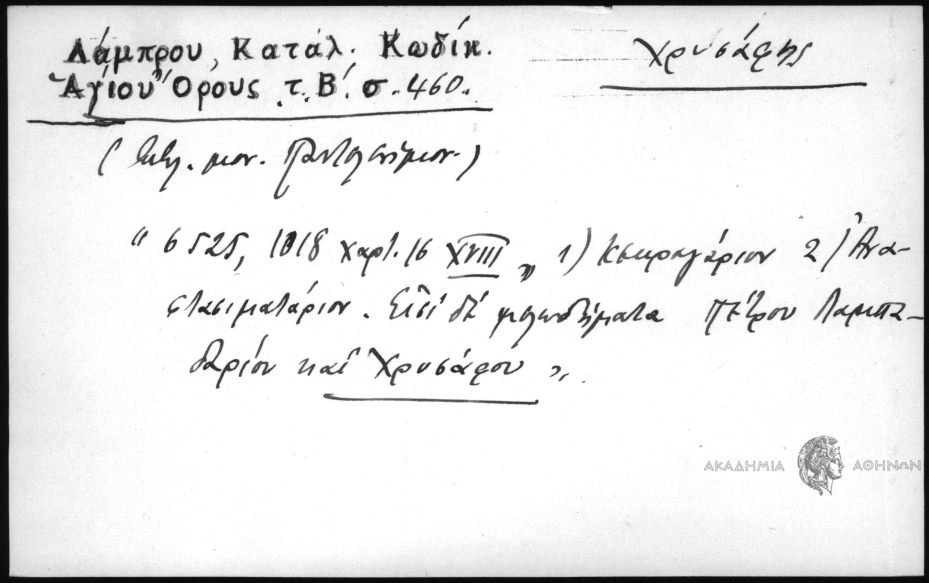 Λάμπρου, Κατάλ. Κωδίκ.
Ἁγίου Ὄρους τ. Β΄. σ. 460.
Χρυσάφης
(Ἐκκλ. μον. Παντελεήμον.)
" 6525, 1018 χαρτ. 16 XVIII „ 1) Κεκραγάριον 2) Ἀνα-
στασιματάριον. Εἰσὶ δὲ μελωδήματα Πέτρου Λαμπα-
δαρίου καὶ Χρυσάφου ".
ΑΚΑΔΗΜΙΑ ΑΘΗΝΩΝ